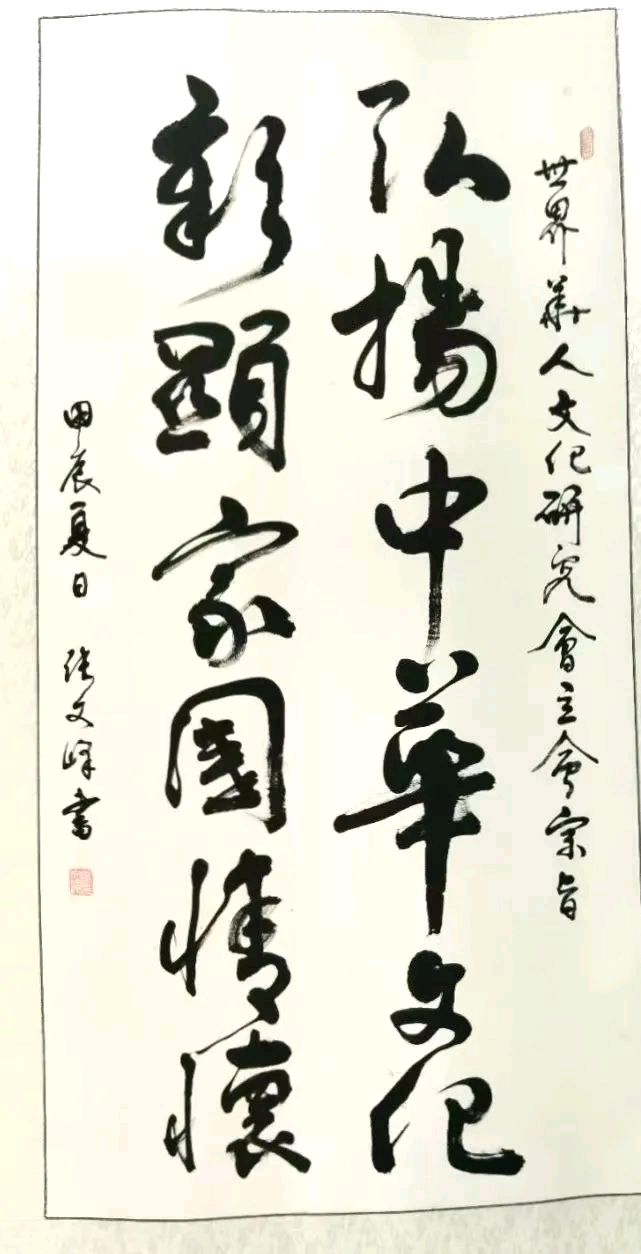 世界華人文化研究會立會宗旨
弘揚中華文化
彰顯家國情懷
甲辰夏日 張文峰書